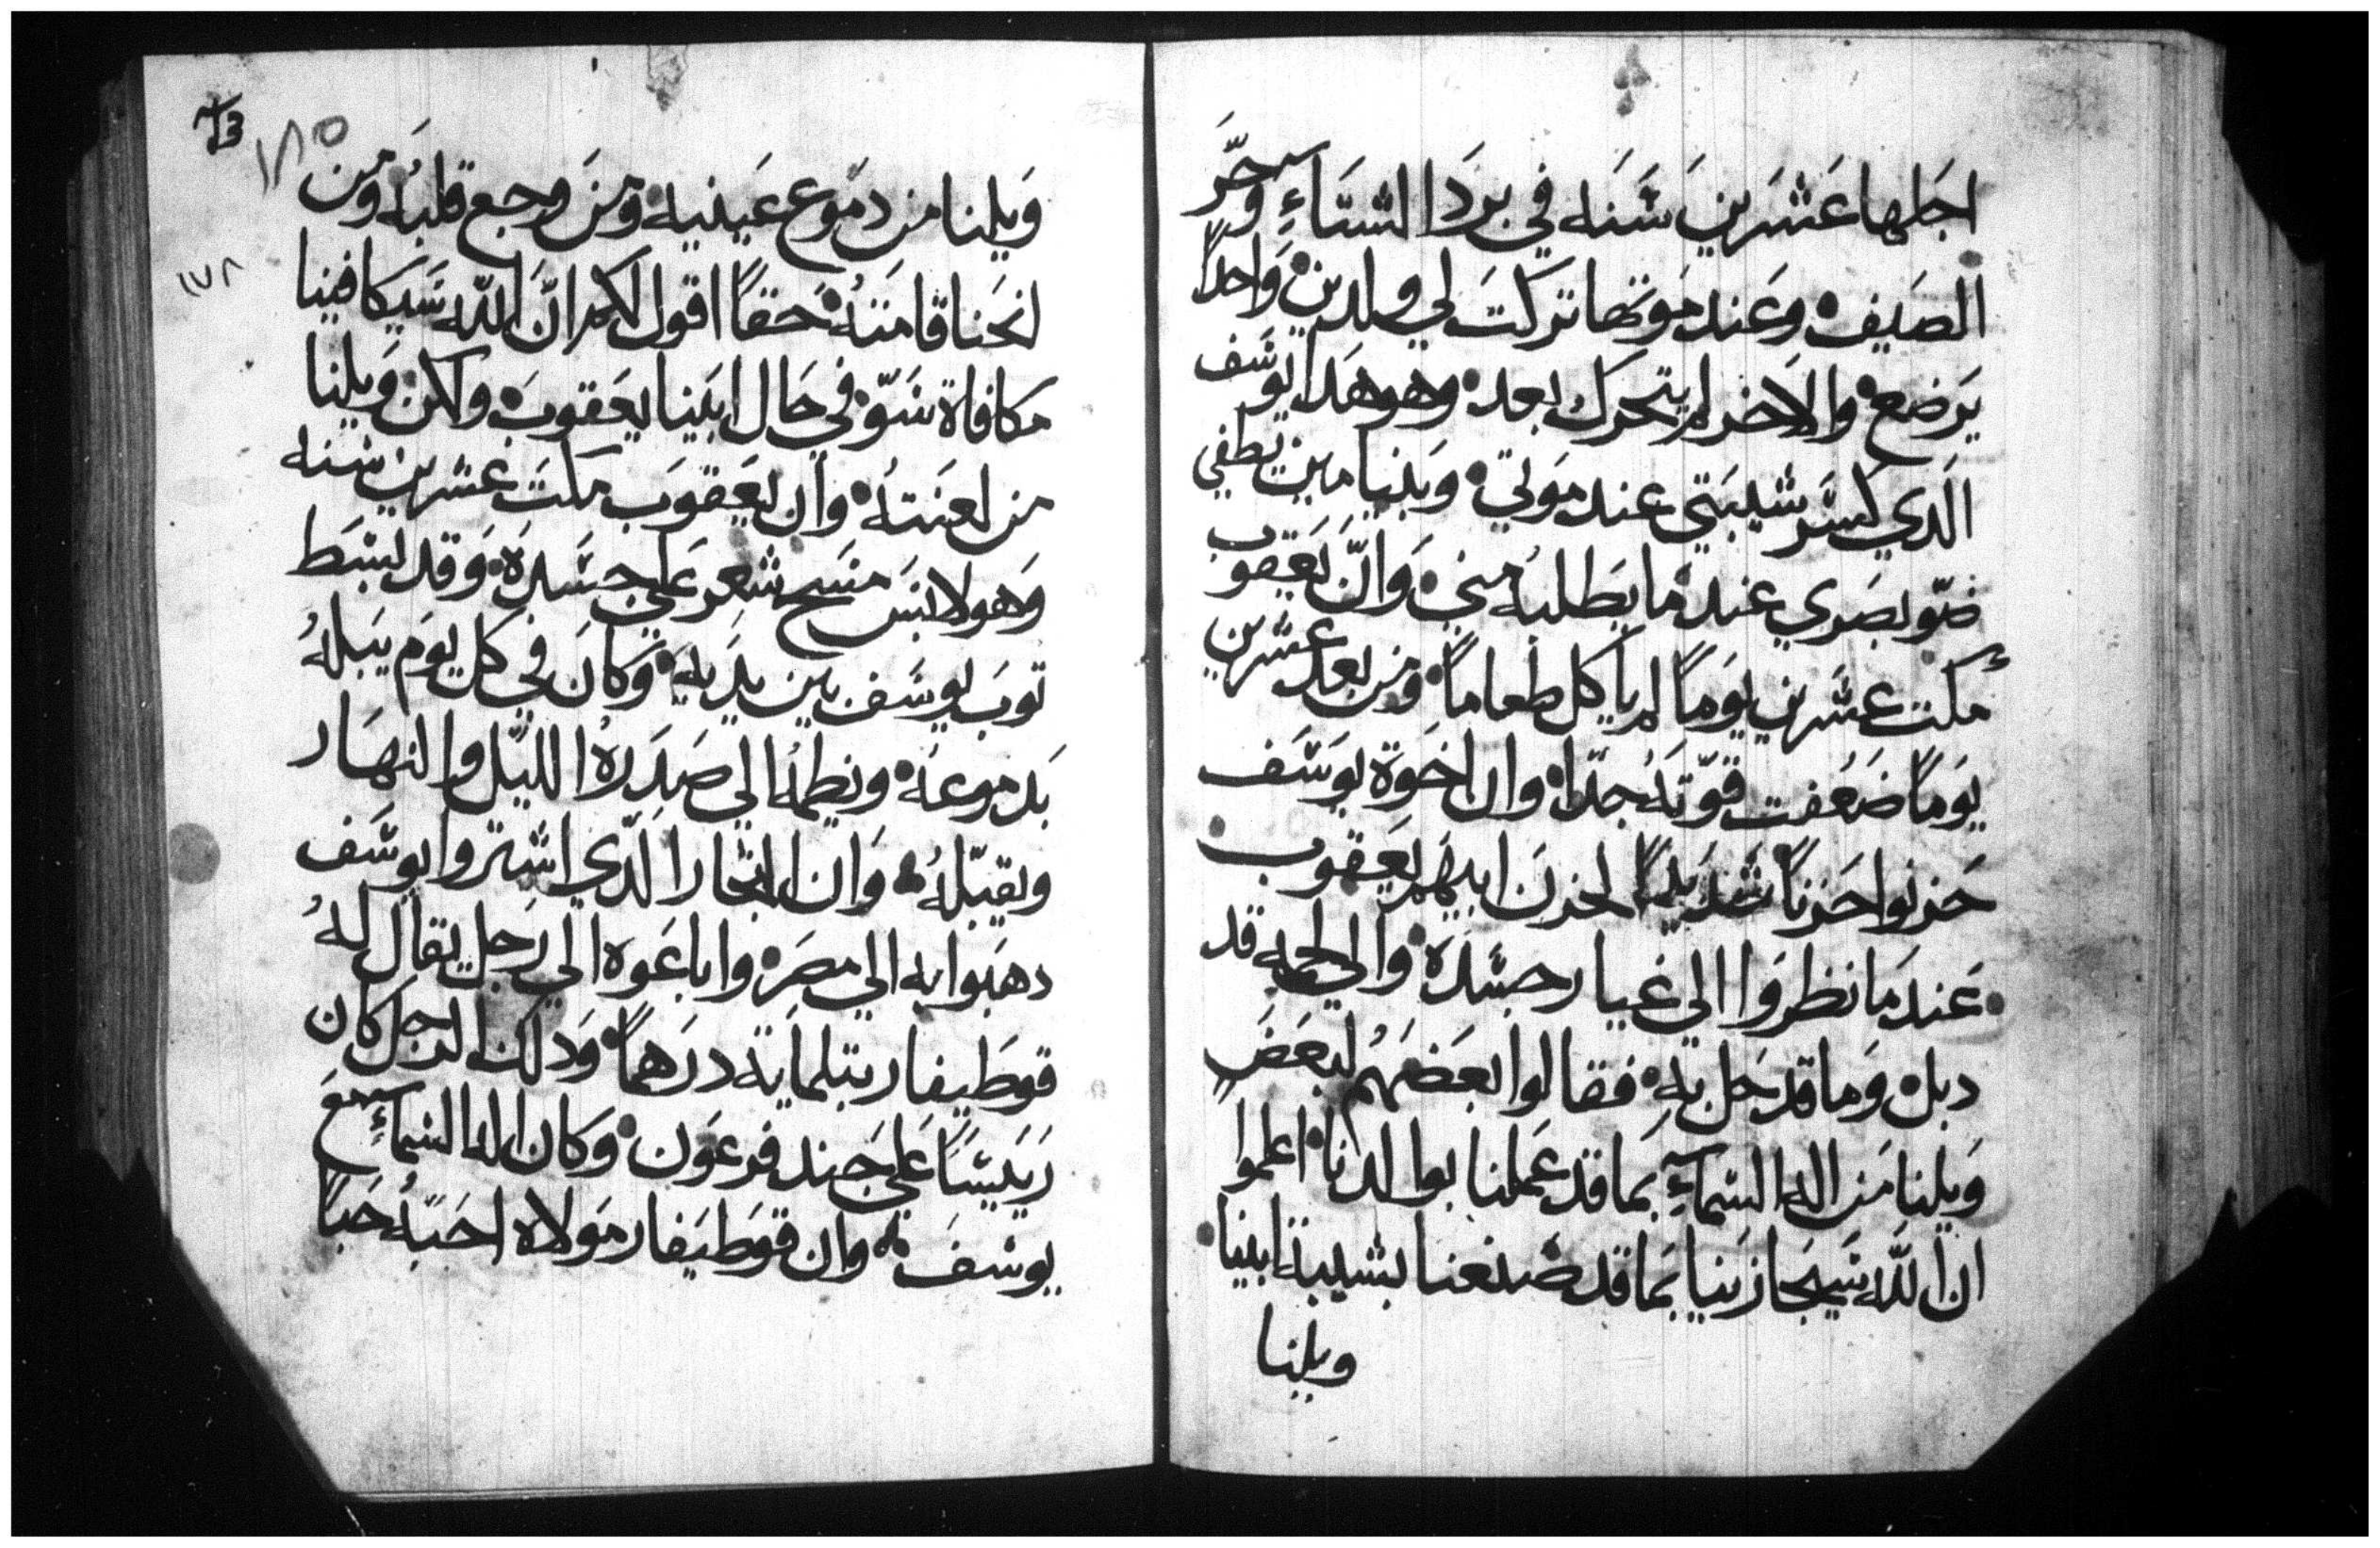 اجلها عَشرَين سَنَه في برَدَا الشتَاءِ وحَّر
الصَيف وعَند موَتها تركتَ لي ولدين وَاحداً
يَرضع والاخر لم يتحرك بعد وهو هَدا يوسَف
الَدي كسَر شيبَتي عند موَتي وَبَنيامين نطفي
ضوّ بصَري عندما يطلبه مني وَانّ يَعَقوب
مكت عشرين يوَماً لم ياكل طعاماً ومن بعد عشرين
يوَماً ضَعُفت قوّتهَ جدّا وان اخوَة يوَسَف
حَزنوا حَزناً شديَداً لحزنَ ابيهَم يَعَقوب
عَندمَا نظروَا الي غيار جسَدة والي لحمه قد
دبل وَما قد حَل به فقالوا بعَضهَمُ لبعَضَ
وَيلنا مَن اله السَماءِ بما قد عَملنا بوالدنا اعلموا
ان اللّه سَيجازينا بمَا قد صَنعنا بشيبة ابينا
ويلنا
١٨٥
١٧٨
وَيلنا من دموَع عَينيه ومَن وجع قلبُه ومَن
انحَنا قامَتهُ حَقاً اقول لكم انَّ اللّه سَيكافينا
مكافاة سَوّ في حَال ابَينا يعَقوبَ ولكن وَيلنا
من لعنَتهُ وان يَعقوَب مكتَ عشرين سنه
وَهو لابَس منسَح شعر علي جسَدة وَقد بسَط
توبَ يوسَف بين يدَيه وَكانَ في كل يوَم يَبلهُ
بَدموعَه ونطمه الي صَدَرهُ الليَل والنهَار
ويقبّلهُ وَان التجار الدّي اشتروا يوسَف
دهبَوا به الي مصَرَ وابَاعَوه الي رَجل يقال لهُ
قوطَيفار بتلماية درَهماً وَدلك الرجل كان
رَيَيسَاً عَلي جَند فرعوَن وَكان اله السماءِ مَع
يوسَفَ وان قوطَيفار موَلاه احَبَهُ حَبَاً